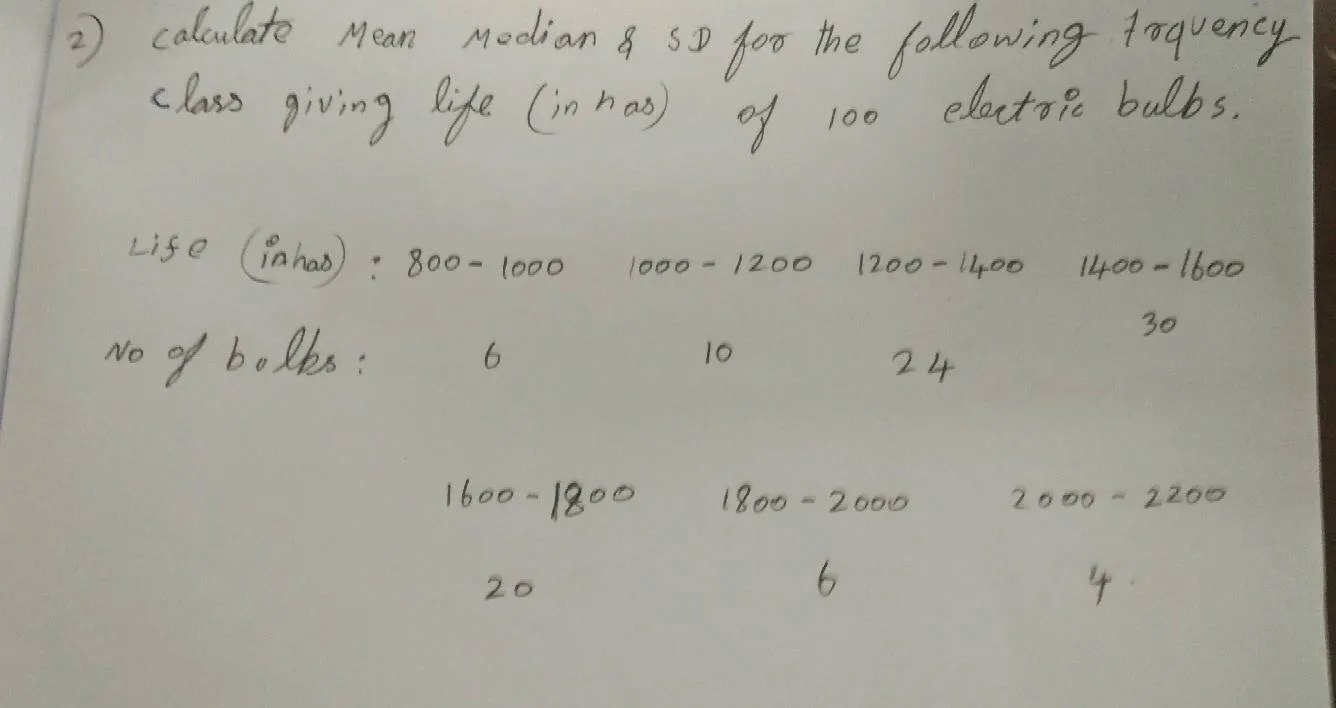 2) calculate Mean Median & SD for the following frquency
class giving life (in hrs) of 100 electric bulbs.
Life (inhrs) : 800 - 1000 1000 - 1200 1200 - 1400 1400 - 1600
No of bulbs : 6 10 24 30
1600 - 1800 1800 - 2000 2000 - 2200
20 6 4